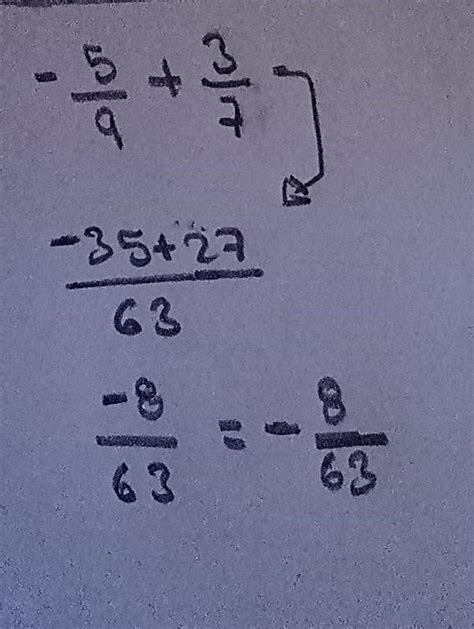 - 5/9 + 3/7
-35+27/63
-8/63 = - 8/63